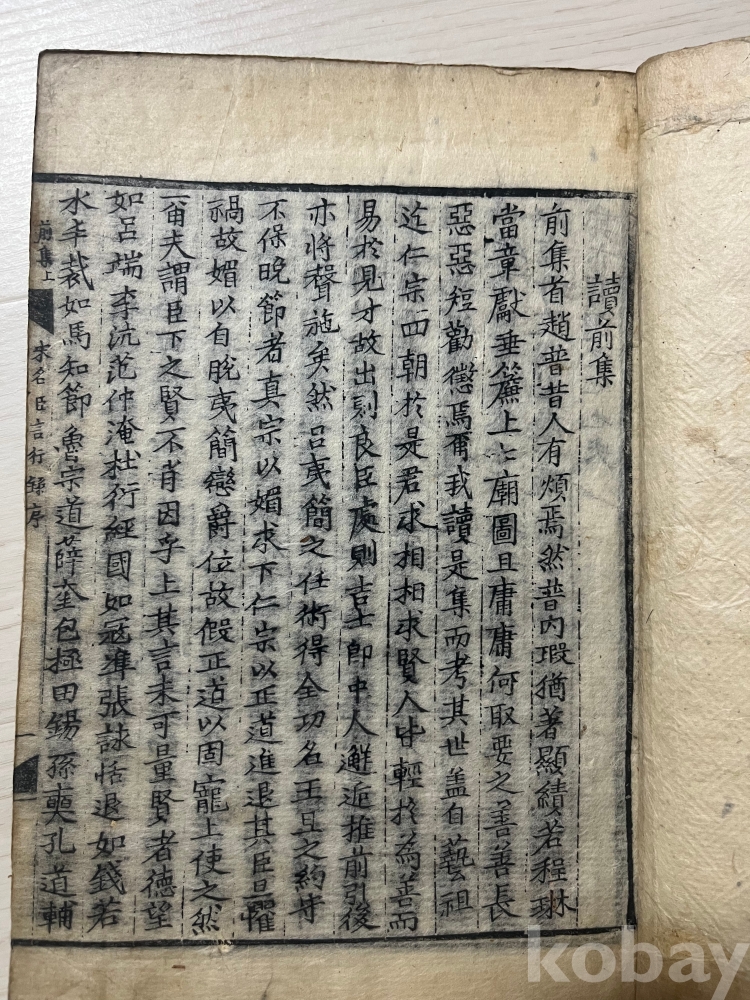 讀前集
前集首趙普昔人有煩焉然普内瑕猶著顯績若程琳
當章獻垂簾上七廟圖且庸庸何取要之善善長
惡惡短勸懲焉爾我讀是集而考其世盖自藝祖
迄仁宗四朝於是君求相相求賢人皆輕於為善而
易於見才故出則良臣處則吉士即中人鮮逅推前引後
亦將聲施矣然吕夷簡之仕術得全功名王旦之約
不保晚節者真宗以媚求下仁宗以正道進退其臣旦懼
禍故媚以自脫夷簡戀爵位故假正道以固寵上使之然
夫謂臣下之賢不肖因乎上其言未可量賢者德望
如吕端李沆范仲淹杜衍經國如冦準張詠恬退如錢若
水丰裁如馬知節魯宗道薛奎包拯田錫孫奭孔道輔
前集上
宋名臣言行録序
kobay